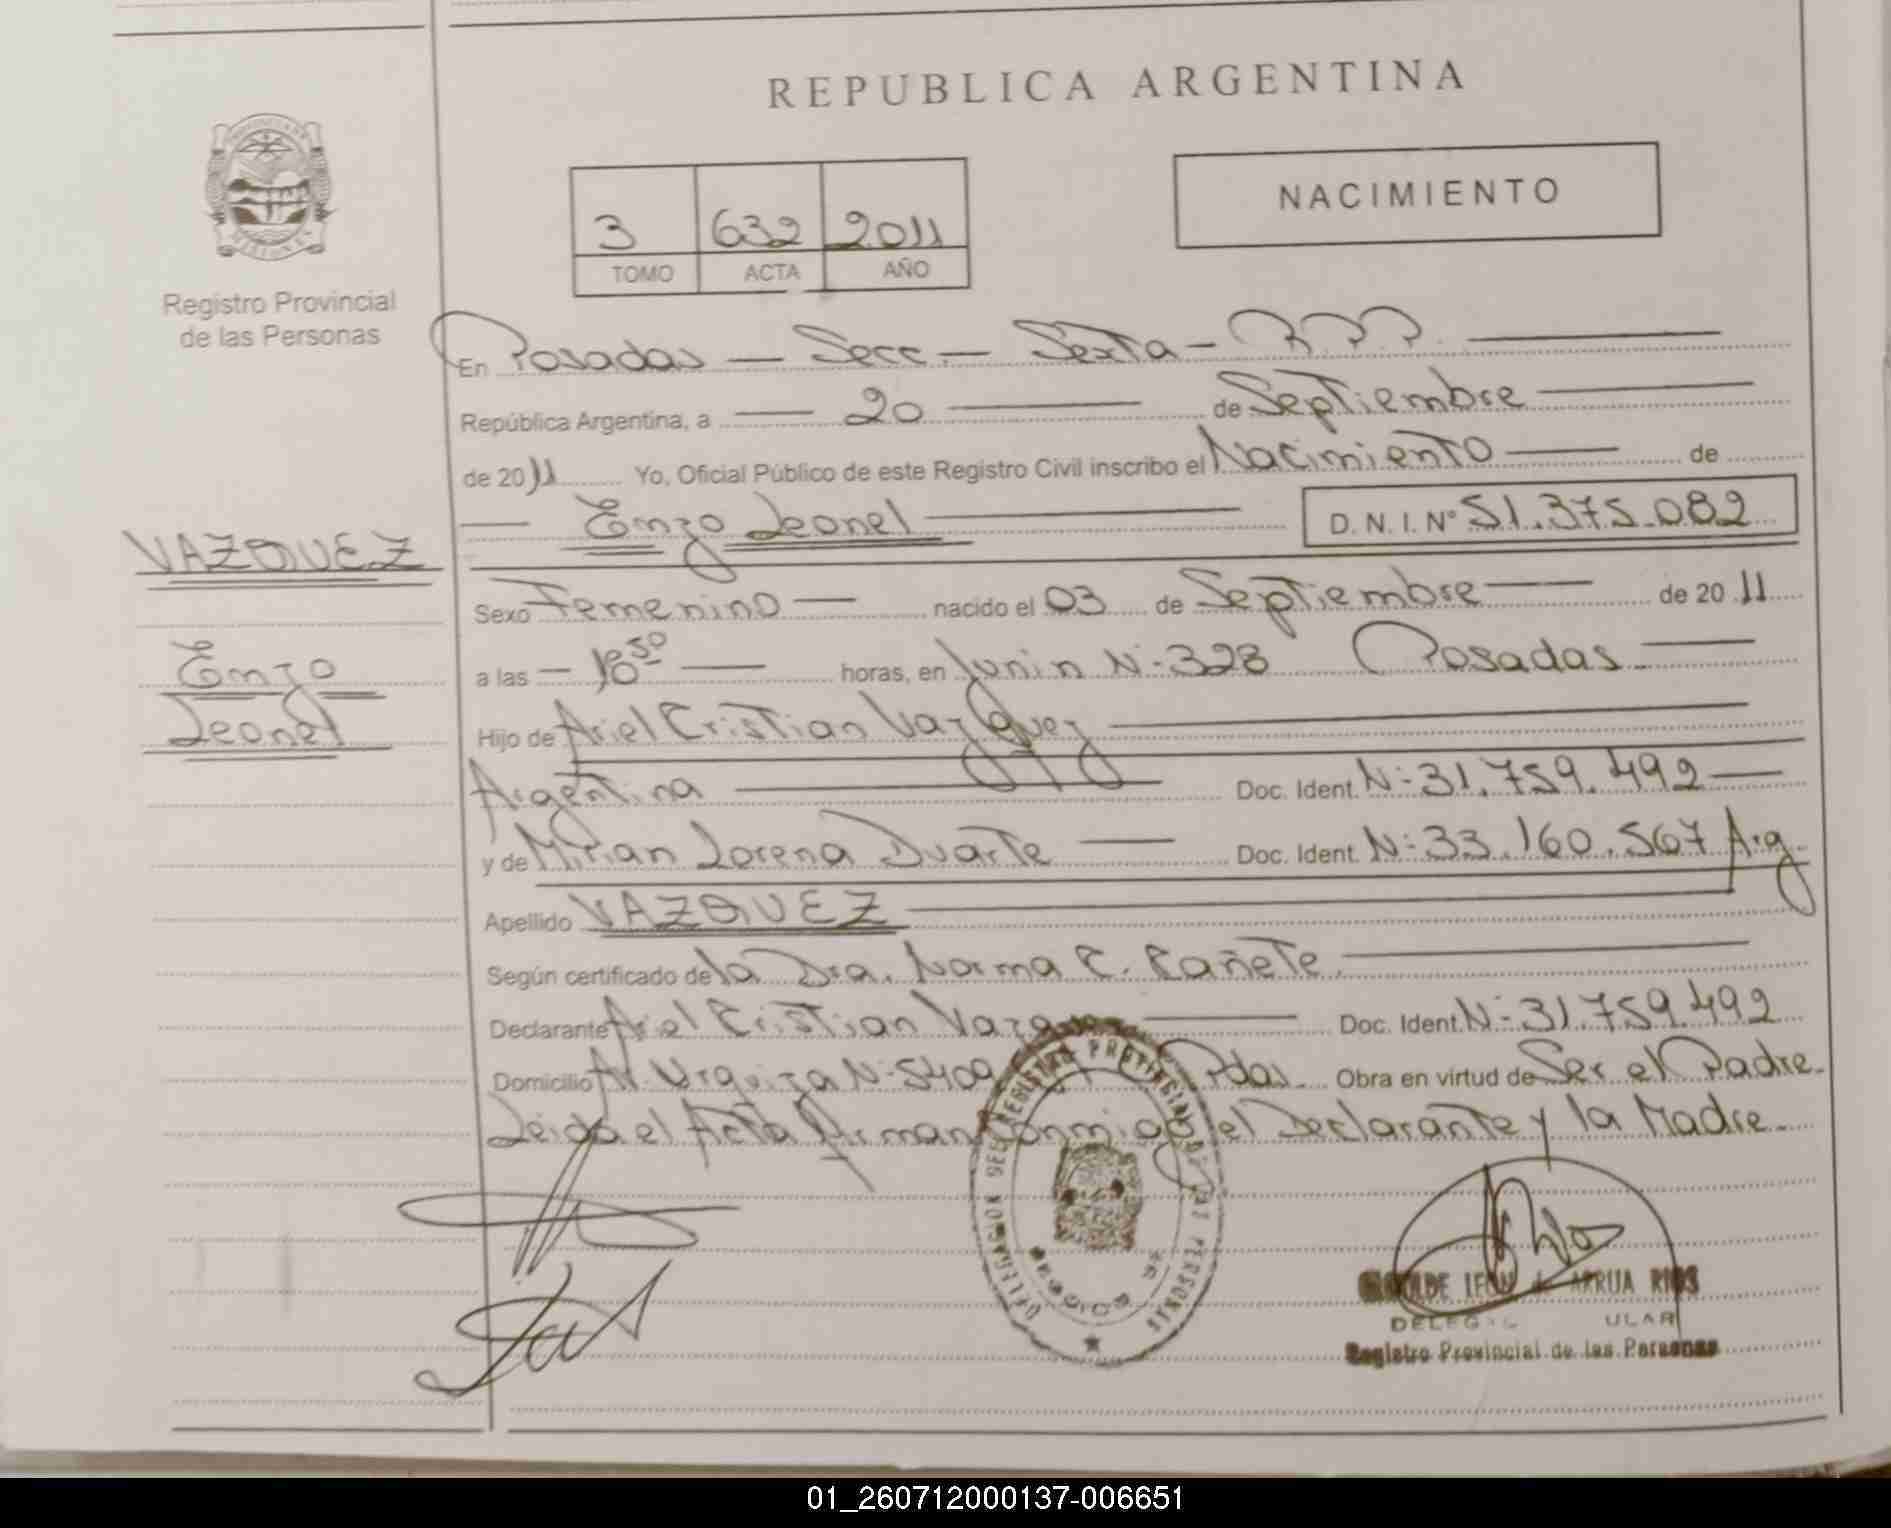 REPUBLICA ARGENTINA
NACIMIENTO
3 632 2011
TOMO ACTA AÑO
Registro Provincial
de las Personas
En Posadas — Secc. — Sexta - R.P.P.
República Argentina, a — 20 — de Septiembre
de 2011 Yo, Oficial Público de este Registro Civil inscribo el Nacimiento — de
— Enzo Leonel — D. N. I. Nº 51.375.082
VAZQUEZ
Enzo
Leonel
Sexo Femenino — nacido el 03 de Septiembre — de 2011
a las — horas, en Junin N: 328 Posadas —
Hijo de Ariel Cristian Vazquez —
Argentina — Doc. Ident. N: 31.759.492 —
y de Mirian Lorena Duarte — Doc. Ident. N: 33.160.567 Arg.
Apellido VAZQUEZ —
Según certificado de la Dra. Norma C. Cañete. —
Declarante Ariel Cristian — Doc. Ident. N: 31.759.492
Domicilio Av Urquiza N: 5409 Pdas. Obra en virtud de Ser el Padre.
Leida el Acta firman conmigo el Declarante y la Madre.
DELEGACION DEL REGISTRO PROVINCIAL DE LAS PERSONAS
LEON ARRUA RIOS
Registro Provincial de las Personas
01_260712000137-006651